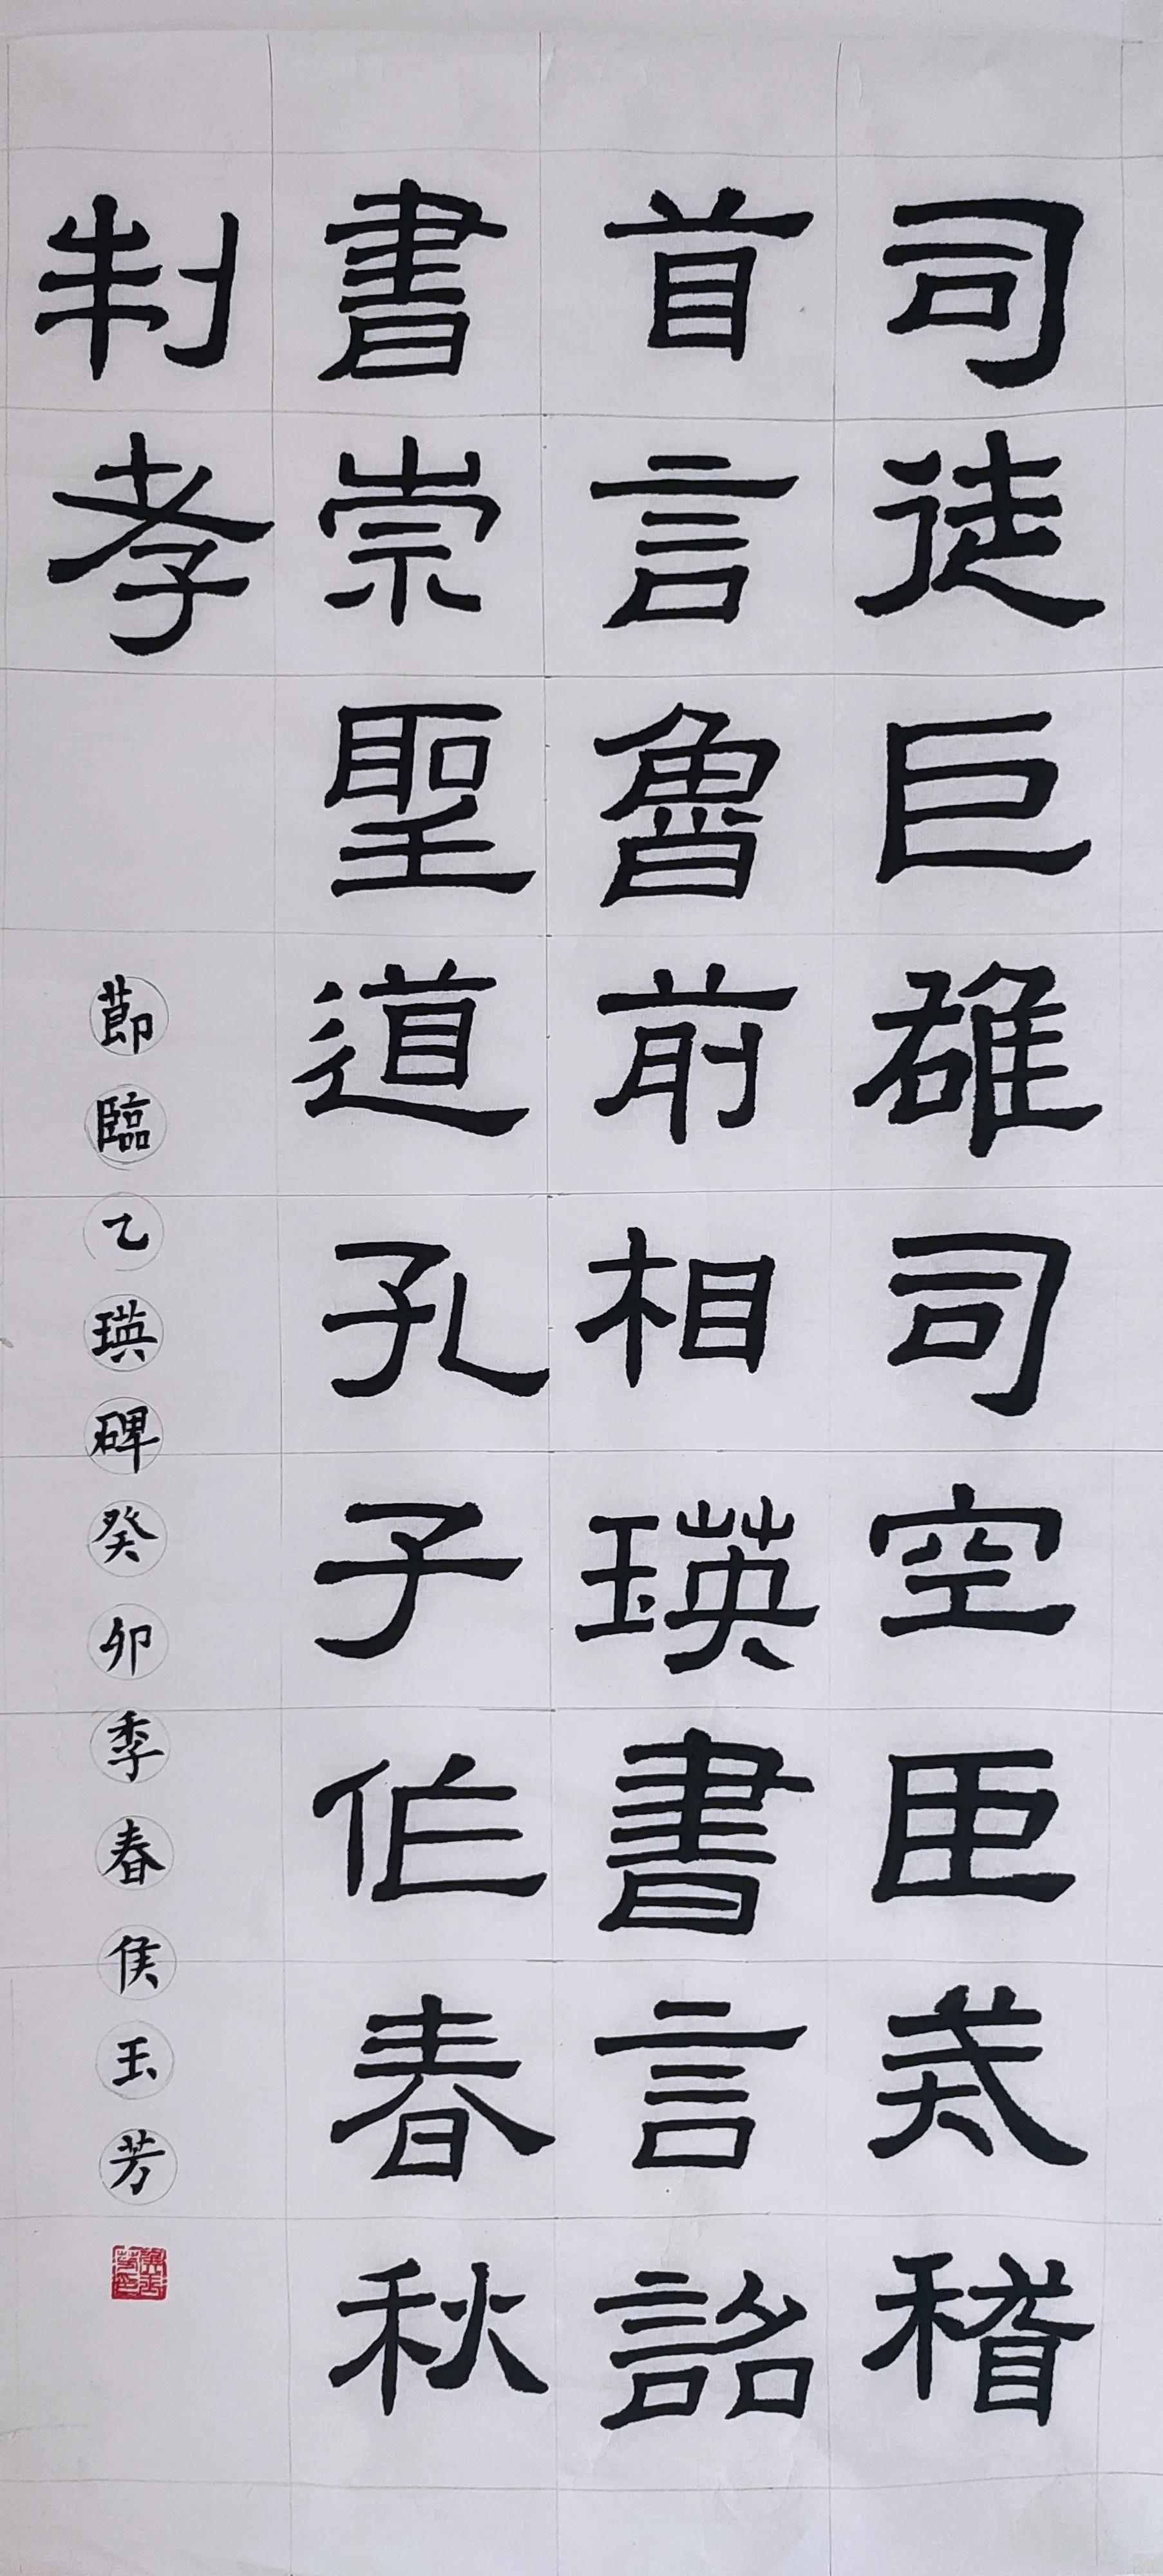 司徒巨雄司空臣戒稽
首言魯前相瑛書言詔
書崇聖道孔子作春秋
制孝
節臨乙瑛碑癸卯季春侯玉芳